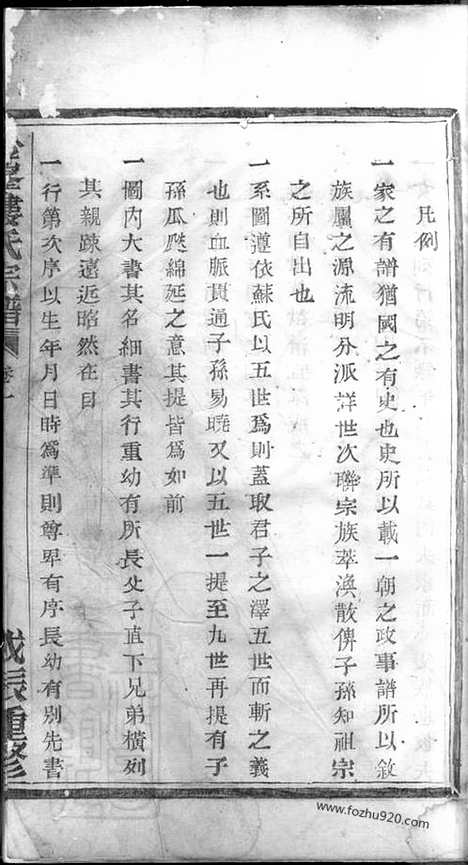 凡例
一家之有譜猶國之有史也史所以載一朝之政事譜所以敘
族屬之源流明分派詳世次聯宗族萃渙散俾子孫知祖宗
之所自出也
一系圖遵依蘇氏以五世爲則蓋取君子之澤五世而斬之義
也則血脈貫通子孫易曉又以五世一提至九世再提有子
孫瓜瓞綿延之意其提皆爲如前
一圖內大書其名細書其行重幼有所長父子直下兄弟橫列
其親疎遠近昭然在目
一行第次序以生年月日時爲準則尊卑有序長幼有別先書
樓氏宗譜 卷一
戊辰重修
www.fozhu920.com